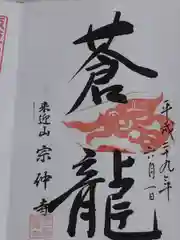 平成二十九年
六月一日
蒼龍
来迎山
宗仲寺